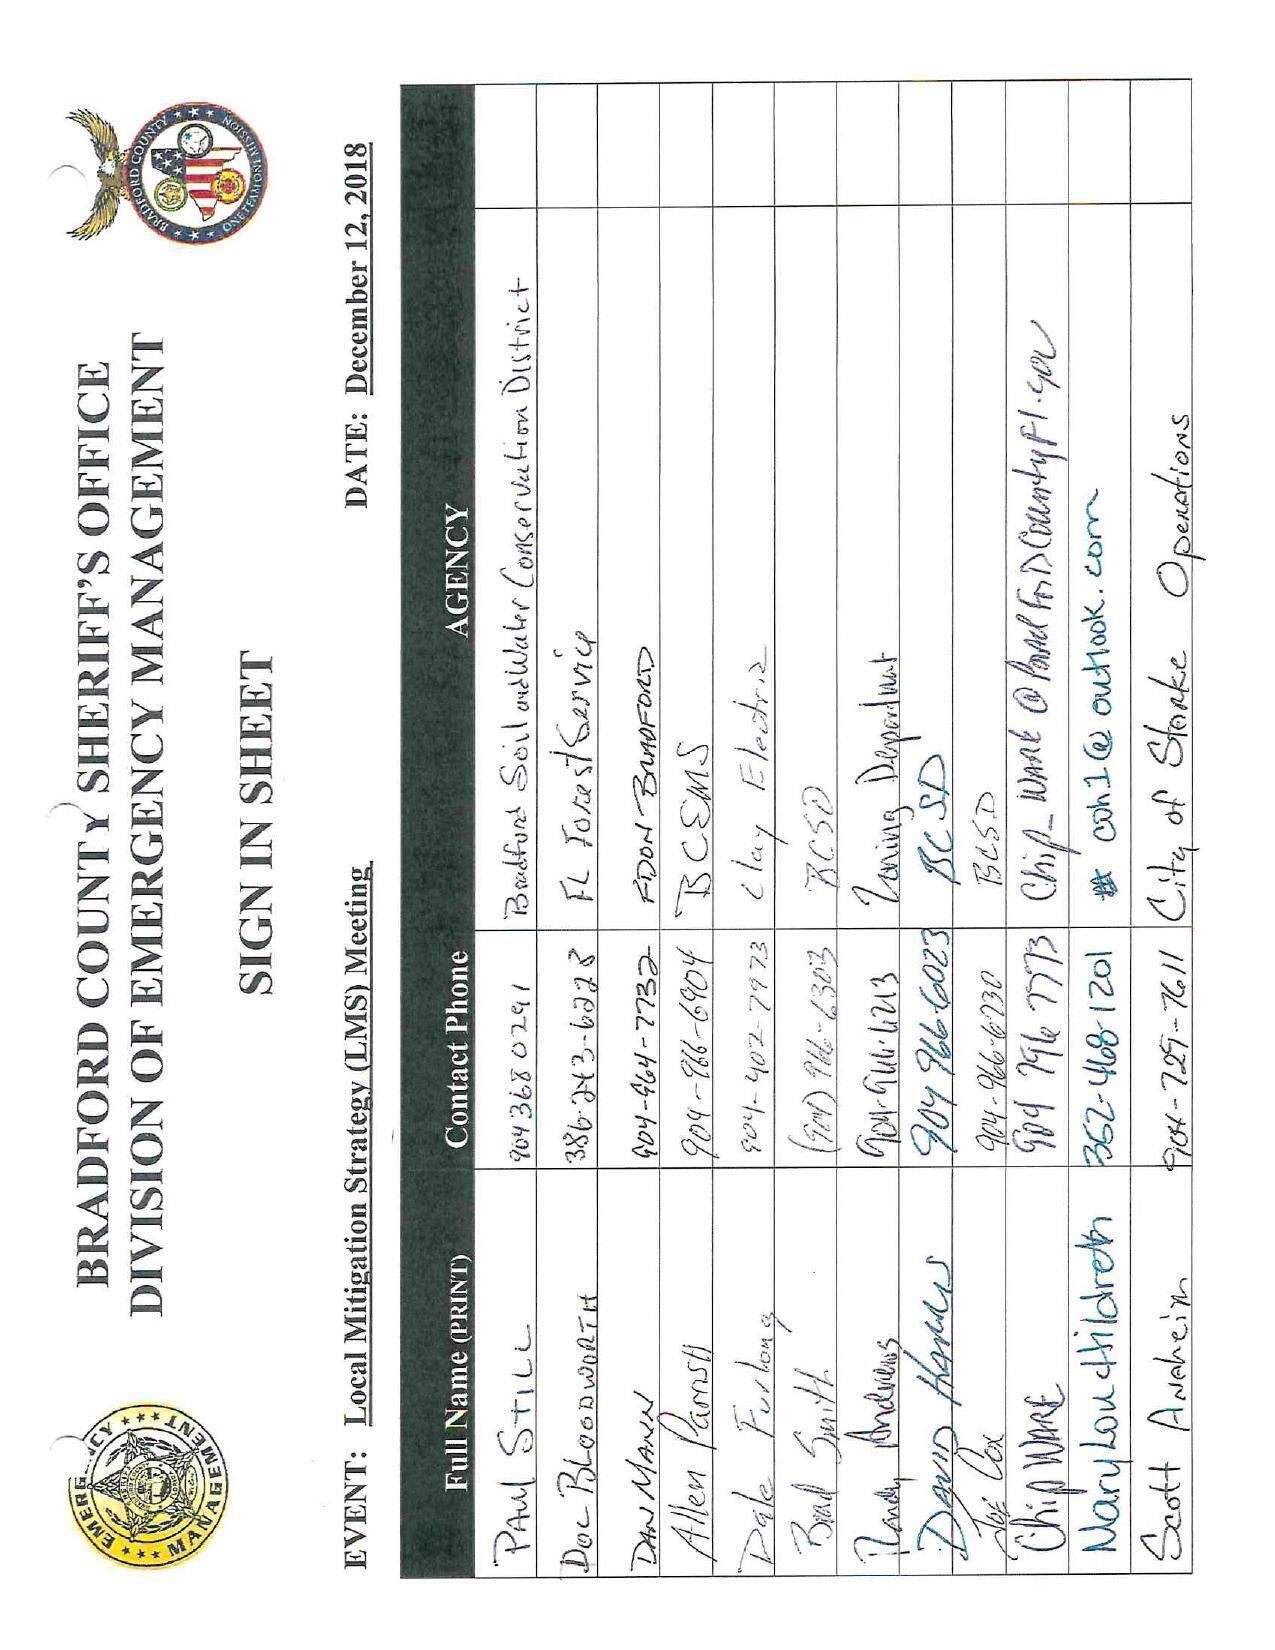 BRADFORD COUNTY SHERIFF'S OFFICE
DIVISION OF EMERGENCY MANAGEMENT
SIGN IN SHEET
EMERGENCY MANAGEMENT
BRADFORD COUNTY
ONE TEAM ONE MISSION
EVENT: Local Mitigation Strategy (LMS) Meeting DATE: December 12, 2018
Full Name (PRINT) Contact Phone AGENCY
PAUL STILL 904 368 0291 Bradford Soil and Water Conservation District
DOC BLOODWORTH 386-243-6228 FL Forest Service
DAN MANN 904-964-7732 FDOH BRADFORD
Allen Parrish 904-966-6904 BCEMS
Dale Furlong 904-402-7973 Clay Electric
Brad Smith (904) 966-6303 BCSD
Randy Andrews 904-966-6213 Zoning Department
DAVID 904 966-6023 BCSD
Joe Cox 904-966-6730 BCSD
Chip WARE 904 796 7793 Chip_WARE@BradfordCountyFl.gov
Mary Lou Hildreth 352-468-1201 @outlook.com
Scott Anaheim 904-729-7611 City of Starke Operations